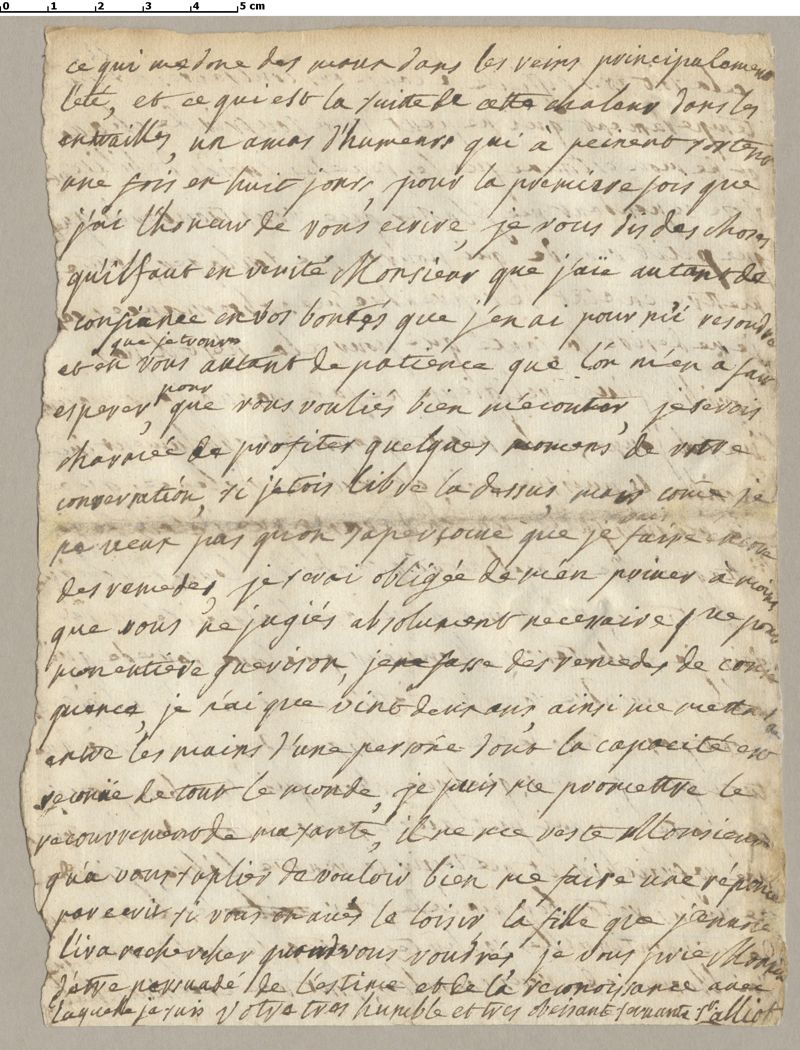 0 1 2 3 4 5 cm
ce qui me done des maux dans les reins principalement
l'été, et ce qui est la suitte de cette chaleur dans les
entrailles, un amas d'humeurs qui a peinent sortent
une fois en huit jours, pour la premiere fois que
j'ai l'honeur de vous ecrire, je vous dis des choses
qu'il faut en verité Monsieur que j'aïe autant de
confiance en vos bontés que j'en ai pour m'i resoudre
que je trouve
et en vous autant de patience que l'on m'en a fait
pour
esperer, que vous vouliés bien m'ecouter, je serois
charmée de profiter quelques momens de votre
conversation, si j'etois libre la dessus, mais come je
ne veux pas qu'on s'apersoive que je faire encore
des remedes, je serai obligée de m'en priver à moins
que vous ne jugiés absolument necesaire que pour
mon entiere guerison, je ne fasse des remedes de conse
quence, je n'ai que vint deux ans, ainsi me mettant
entre les mains d'une persone dont la capacité est
reconüe de tout le monde, je puis me promettre le
recouvrement de ma santé, il ne me reste Monsieur
qu'a vous suplier de vouloir bien me faire une réponce
par ecrit si vous en avés le loisir la fille que j'envoie
l'ira rechercher quand vous voudrés je vous prie Monsieur
d'être persuadé de l'estime et de la reconoissance avec
laquelle je suis votre tres humble et tres obeissante servante alliot